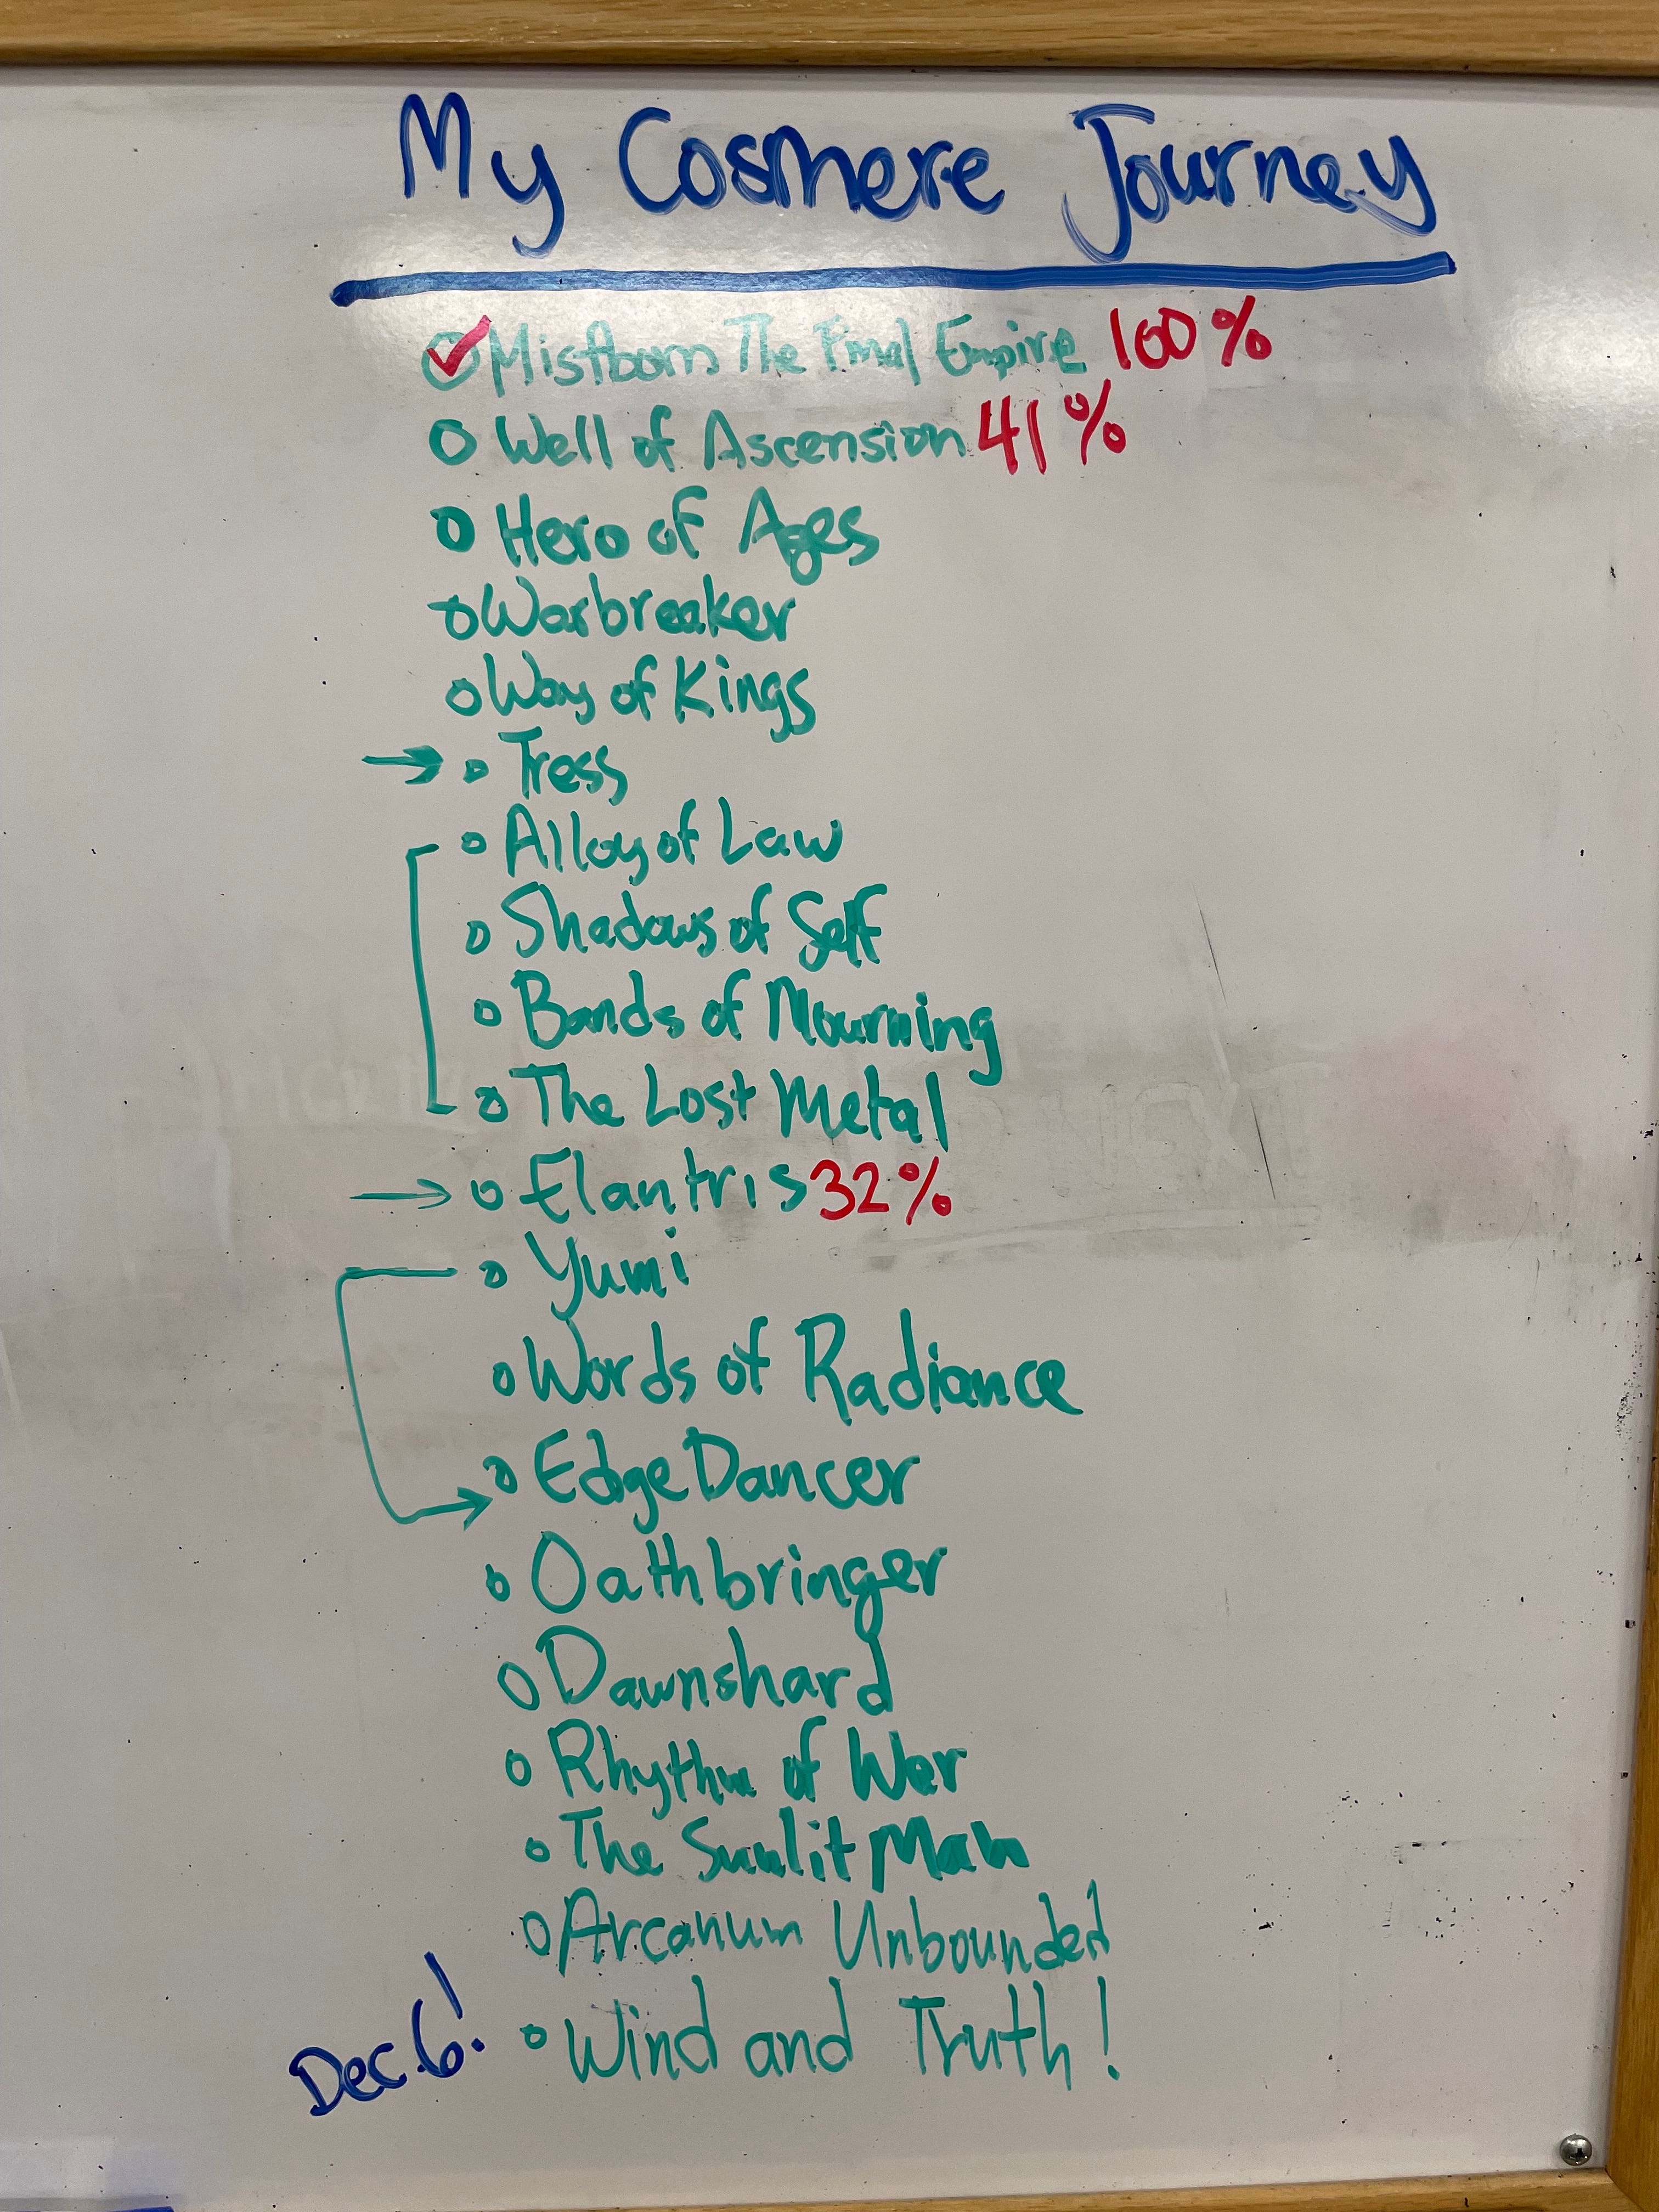 My Cosmere Journey
Mistborn The Final Empire 100%
Well of Ascension 41%
Hero of Ages
Warbreaker
Way of Kings
Tress
Alloy of Law
Shadows of Self
Bands of Mourning
The Lost Metal
Elantris 32%
Yumi
Words of Radiance
EdgeDancer
Oathbringer
Dawnshard
Rhythm of War
The Sunlit Man
Arcanum Unbounded
Dec. 6! Wind and Truth!